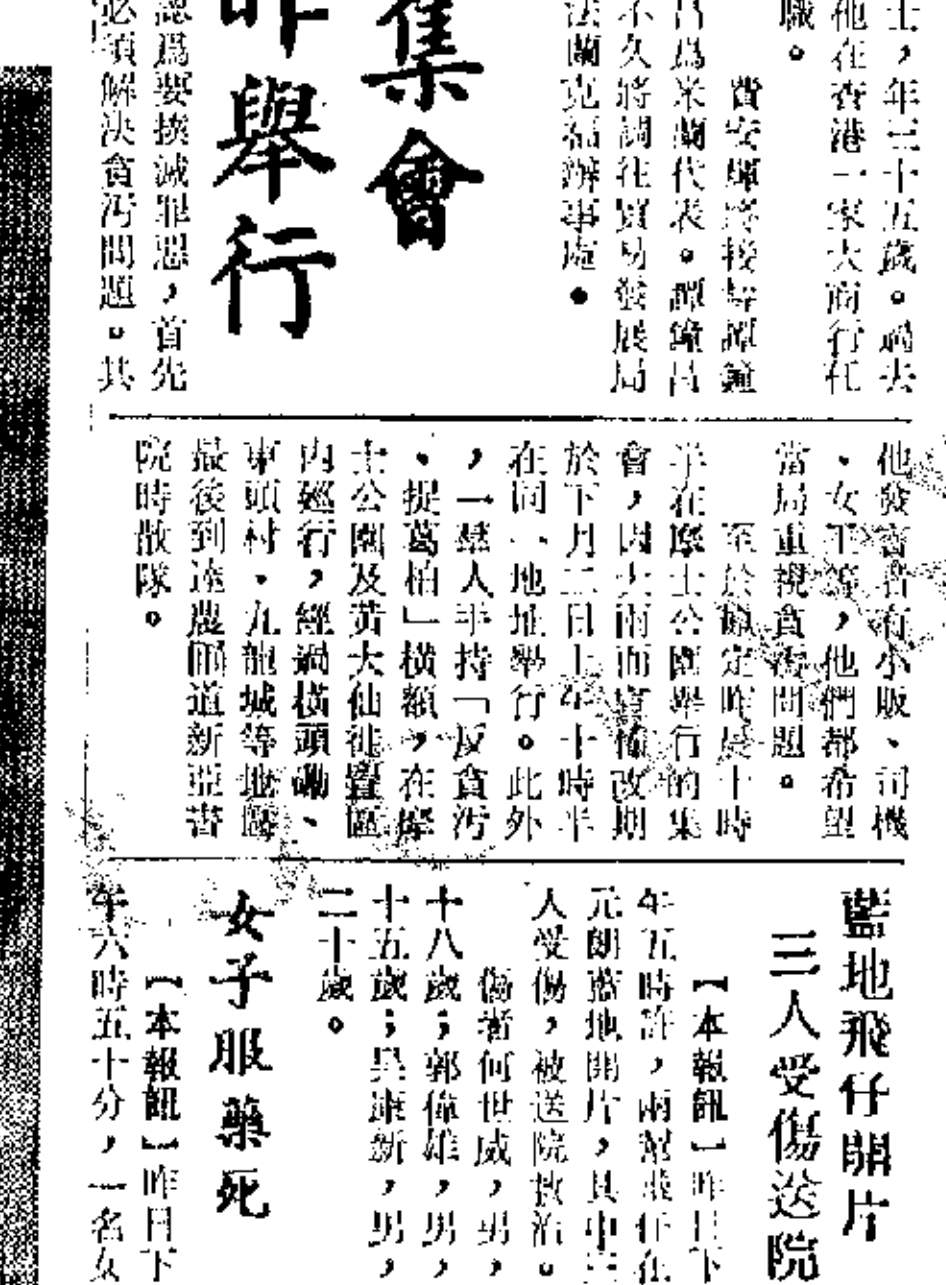 士，年三十五歲。過去
他在香港一家大商行任
職。
費安輝將接替譚鐘
昌爲米蘭代表。譚鐘昌
不久將調往貿易發展局
法蘭克福辦事處。
集會
昨舉行
認爲要撲滅罪惡，首先
必須解決貪污問題。共
他發言者有小販、司機
、女工等，他們都希望
當局重視貪污問題。
至於原定昨晨十時
半在摩士公園舉行的集
會，因大雨而宣佈改期
於下月二日上午十時半
在同一地址舉行。此外
，一羣人手持「反貪污
、捉葛柏」橫額，在摩
士公園及黃大仙徙置區
內廵行，經過橫頭磡、
東頭村、九龍城等地區
最後到達農圃道新亞書
院時散隊。
藍地飛仔開片
三人受傷送院
【本報訊】昨日下
午五時許，兩幫飛仔在
元朗藍地開片，其中三
人受傷，被送院救治。
傷者何世威，男，
十八歲；郭偉雄，男，
十五歲；吳康新，男，
二十歲。
女子服藥死
【本報訊】昨日下
午六時五十分，一名女